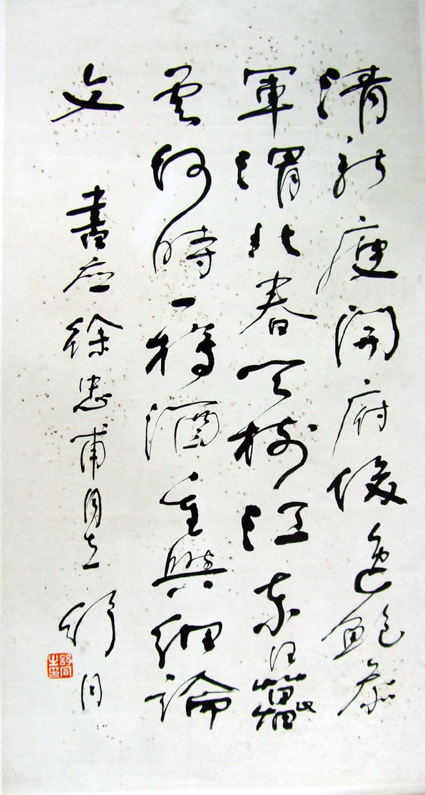 清新庾開府俊逸鮑參
軍渭北春天樹江東日暮
雲何時一樽酒重與細論
文
書應徐忠甫同志 舒同
舒同之印